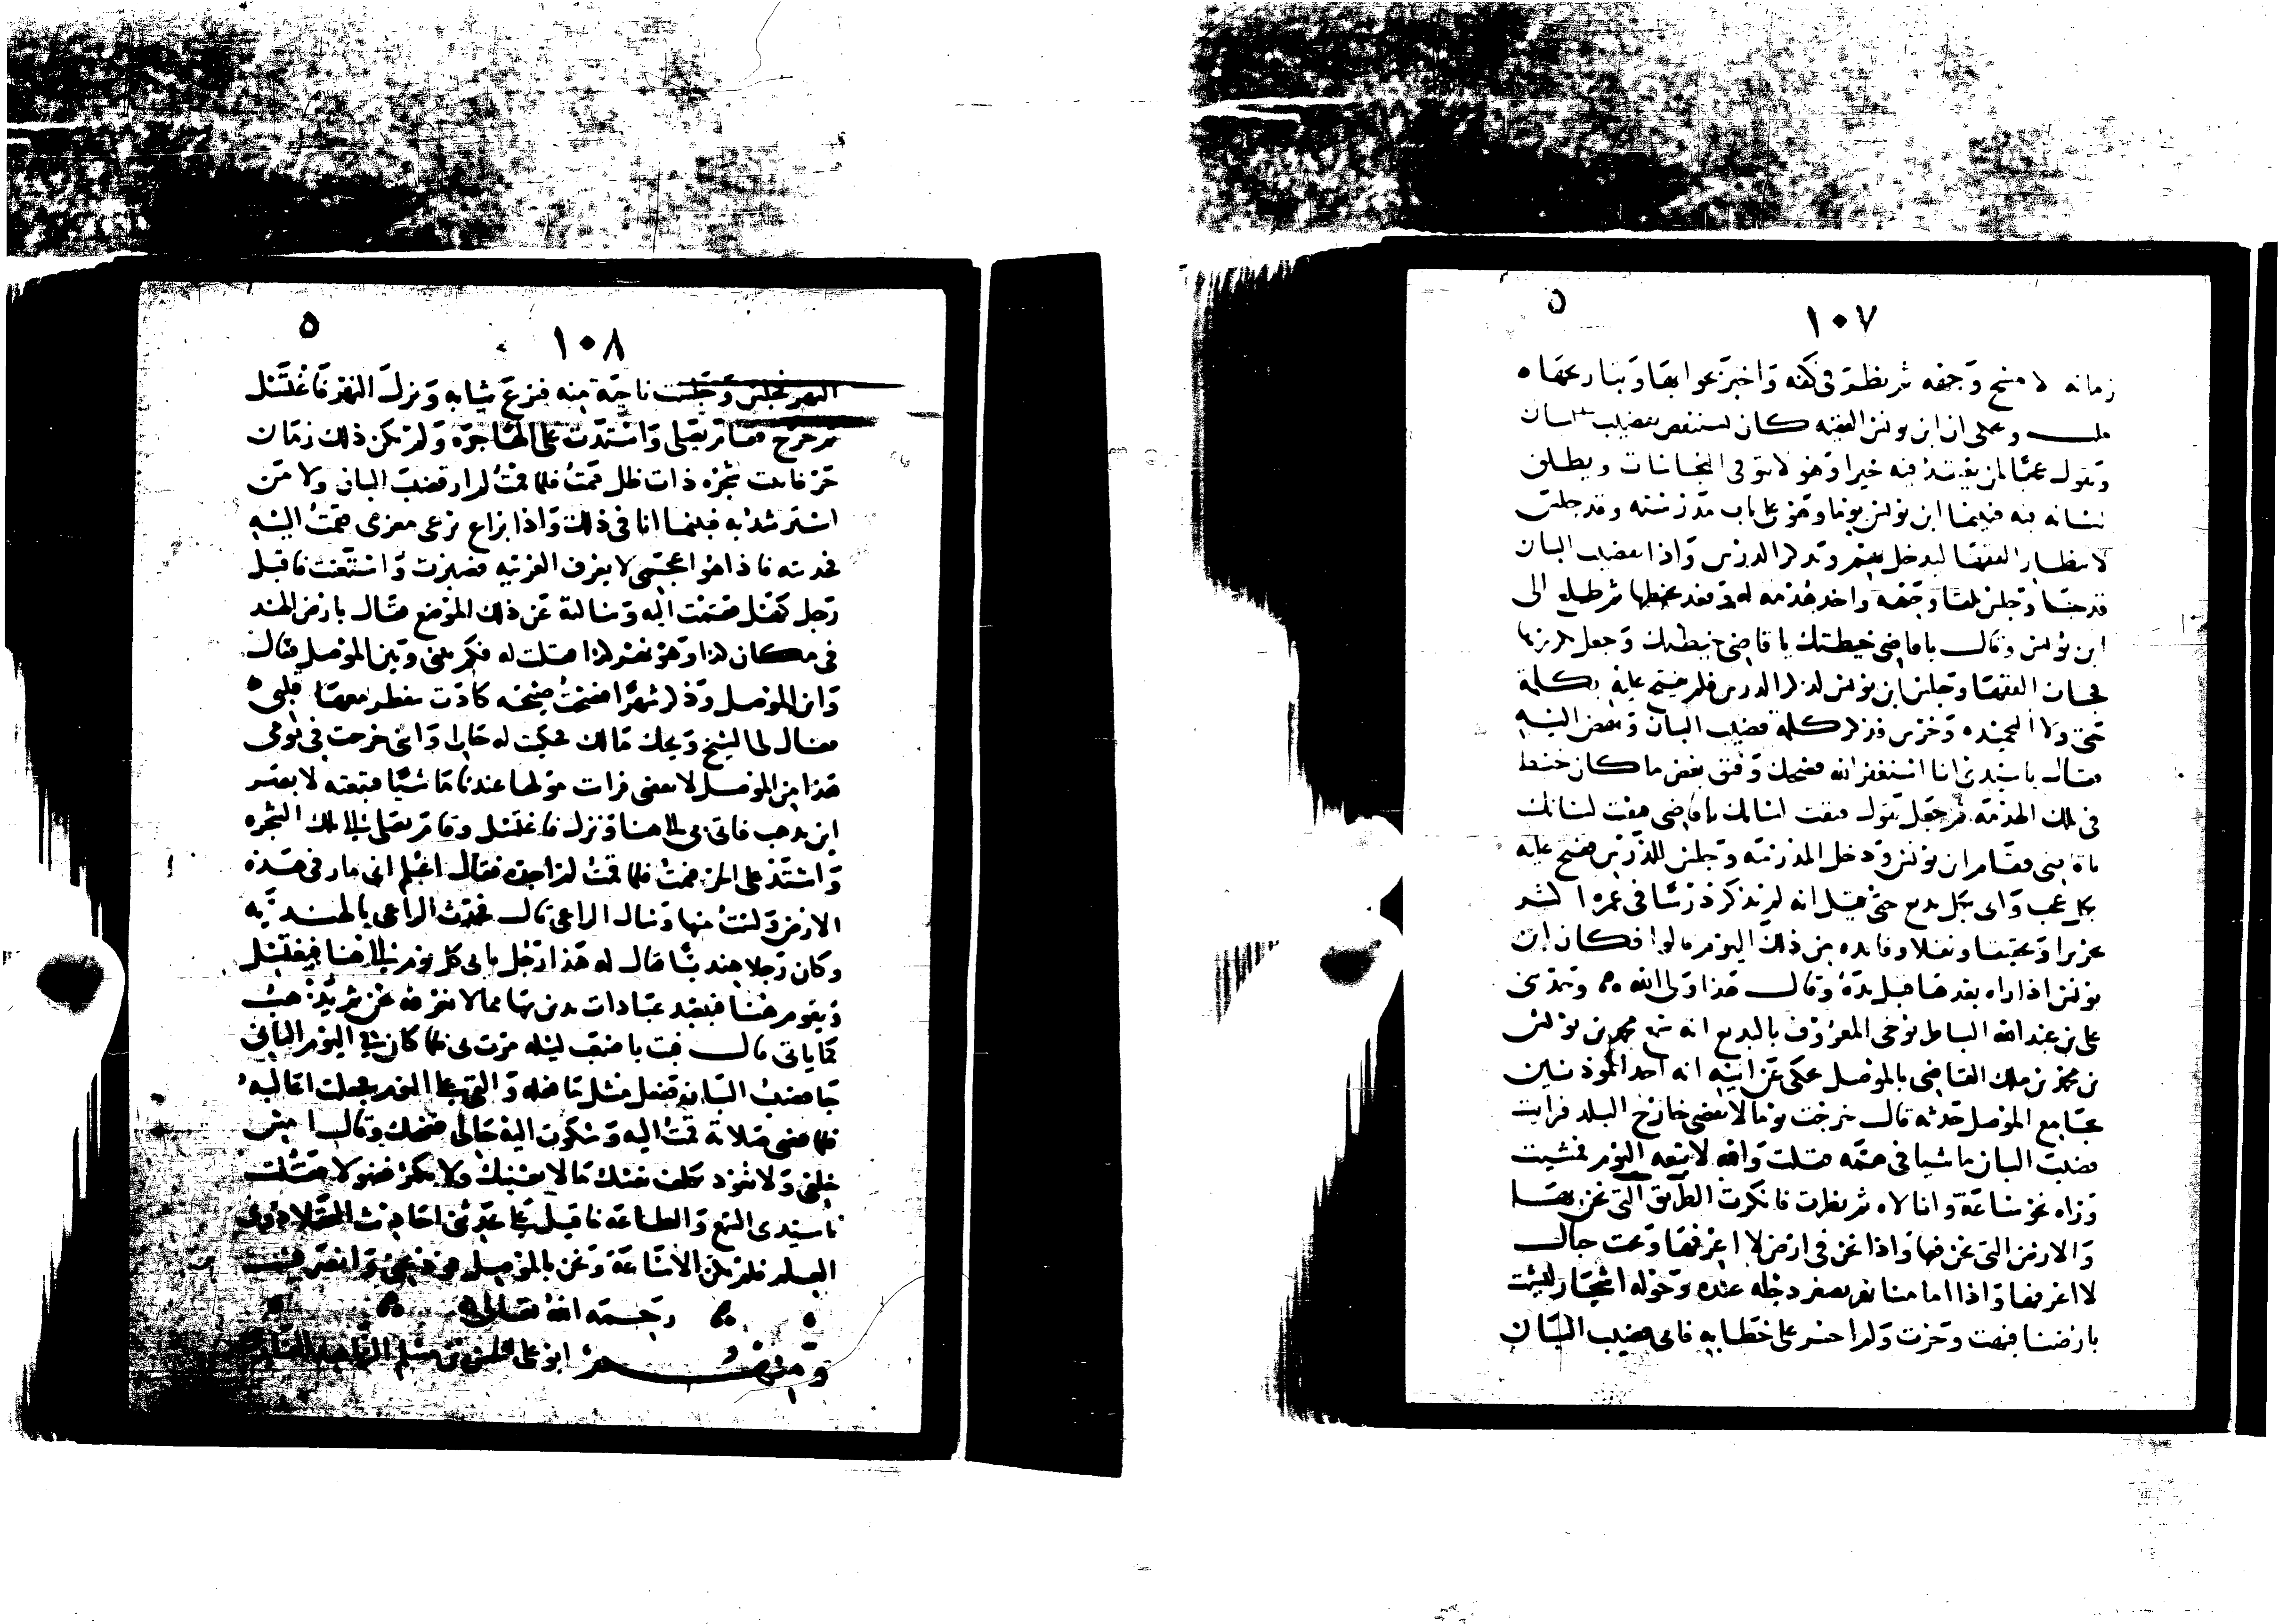 ١٠٧
زمانه لا منح وجهه ثم نظر في كفه واخبر بمواتها وتبار عنها ه
وعلى ان ابن يونس الفقيه كان يستنقص بقضيب البان
ويقول عجبا لمن يعتقد فيه خيرا وهو لا يتوقى النجاسات ويطلق
لسانه فيه فبينما ابن يونس يوما وهو على باب مدرسته وقد جلس
لانتظار الفقها ليدخل بهم وتذكر الدرس واذا بقضيب البان
قد جا وجلس تلقا وجهه واخذ هدمه له وقعد يخيطها ثم طلع الى
ابن يونس وقال يا قاضي خيطتك يا قاضي خيطتك وجعل يكررها
فجات الفقها وجلس ابن يونس لذكر الدرس فلم يفتح عليه بكلمة
حتى ولا الحمد لله وخرس فذكر كلام قضيب البان ونهض اليه
فقال يا سيدي انا استغفر الله فضحك وفتق بعض ما كان خيط
في تلك الهدمة ثم جعل يقول فتقت لسانك يا قاضي فتقت لسانك
يا بني فقام ابن يونس ودخل المدرسة وجلس للدرس ففتح عليه
بكل عجب واتى بكل بديع حتى قيل انه لم يذكر درسا في عمره اكثر
عزيرا وتحقيقا ونقلا وفايده من ذلك اليوم قالوا فكان ابن
يونس اذا راه بعدها قبل يده وقال هذا ولي الله ه وحدثني
علي بن عبد الله الساطرنوحي المعروف بالبديع انه سمع محمد بن يونس
بن محمد بن ملك القاضي بالموصل يحكي عن ابيه انه احد المؤذنين
بجامع الموصل حدثه قال خرجت يوما لا بعضي خارج البلد فرايت
قضيب البان ماشيا في همة فقلت والله لاتبعه اليوم فمشيت
وراه نحو ساعة وانا لاه ثم نظرت فانكرت الطريق التي نحن بها
والارض التي نحن فيها واذا نحن في ارض لا اعرفها وتحت جبال
لا اعرفها واذا امامنا نهر بصغر دجلة عنده وحوله اشجار ليست
بارضنا فبهت وحرت ولم اجسر على خطابه فاتى قضيب البان
١٠٨
النهر فجلس وجلست ناحية منه فنزع ثيابه ونزل النهر فاغتسل
ثم خرج فقام يصلي واشتدت علي الهاجرة ولم يكن ذلك زمان
حر فاتيت شجره ذات ظل فنمت فلما قمت لم ار قضيب البان ولا من
استرشد به فبينما انا في ذلك واذا براع يرعى معزى فقمت اليه
فحدثته فاذا هو اعجمي لا يعرف العربيه فصبرت واستعنت فاقبل
رجل كهل فقمت اليه وسالته عن ذلك الموضع فقال بارض الهند
في مكان كذا وهو نهر كذا فقلت له فكم بيني وبين الموصل فقال
واين الموصل وذكر شهرا فصحت صيحة كادت ينفطر معها قلبي ه
فقال لي الشيخ ويحك مالك فحكيت له حالي واني خرجت في يومي
هذا من الموصل لا بعضي فرات مولها عندنا ماشيا فتبعته لا بصر
اين يذهب فاتى بي الى هنا ونزل فاغتسل وقام يصلي الى تلك الشجره
واشتد علي الحر فنمت فلما قمت لم اجده فقال اعلم اني مار في هذه
الارض ولست منها وسال الراعي قال فحدث الراعي بالهنديه
وكان رجلا هنديا فقال له هذا رجل ياتي كل يوم الى هنا فيغتسل
ويقوم هنا فيعبد عبادات يدين بها مما لا نعرفه نحن ثم يذهب
كما ياتي قال فبت باصعب ليله مرت بي فلما كان في اليوم الثاني
جا قضيب البان ففعل مثل ما فعله والتقى على النهر فجعلت اغالبه
فلما قضى صلاته قمت اليه وشكوت اليه حالي فضحك وقال امش
خلفي ولا تعود تكلف نفسك ما لا يعنيك ولا تكن فضولا فقلت
يا سيدي السمع والطاعة فاقبل علي يحدثني احاديث
فلم يكن الا ساعة ونحن بالموصل فودعني وانصرفت
رحمه الله تعالى
ومنهم ابو علي الحسن بن مسلم الزاهد